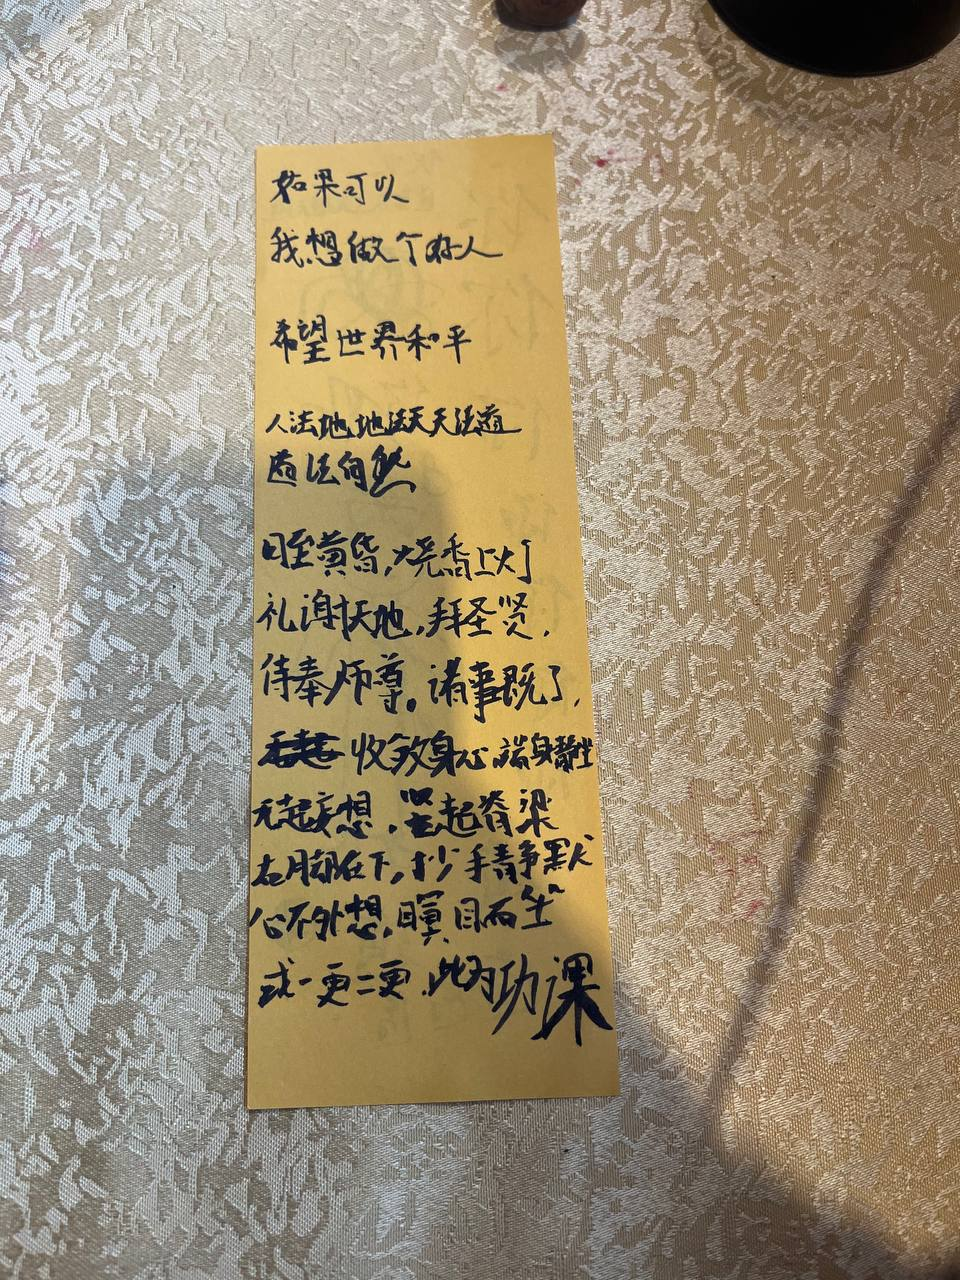 如果可以
我想做个好人
希望世界和平
人法地地法天天法道
道法自然
日至黄昏,烧香上灯
礼谢天地,拜圣贤,
侍奉师尊。诸事既了,
收敛身心,端身静坐
无起妄想,竖起脊梁
右脚在下,抄手静默
心不外想,瞑目而坐
或一更二更,此为功课